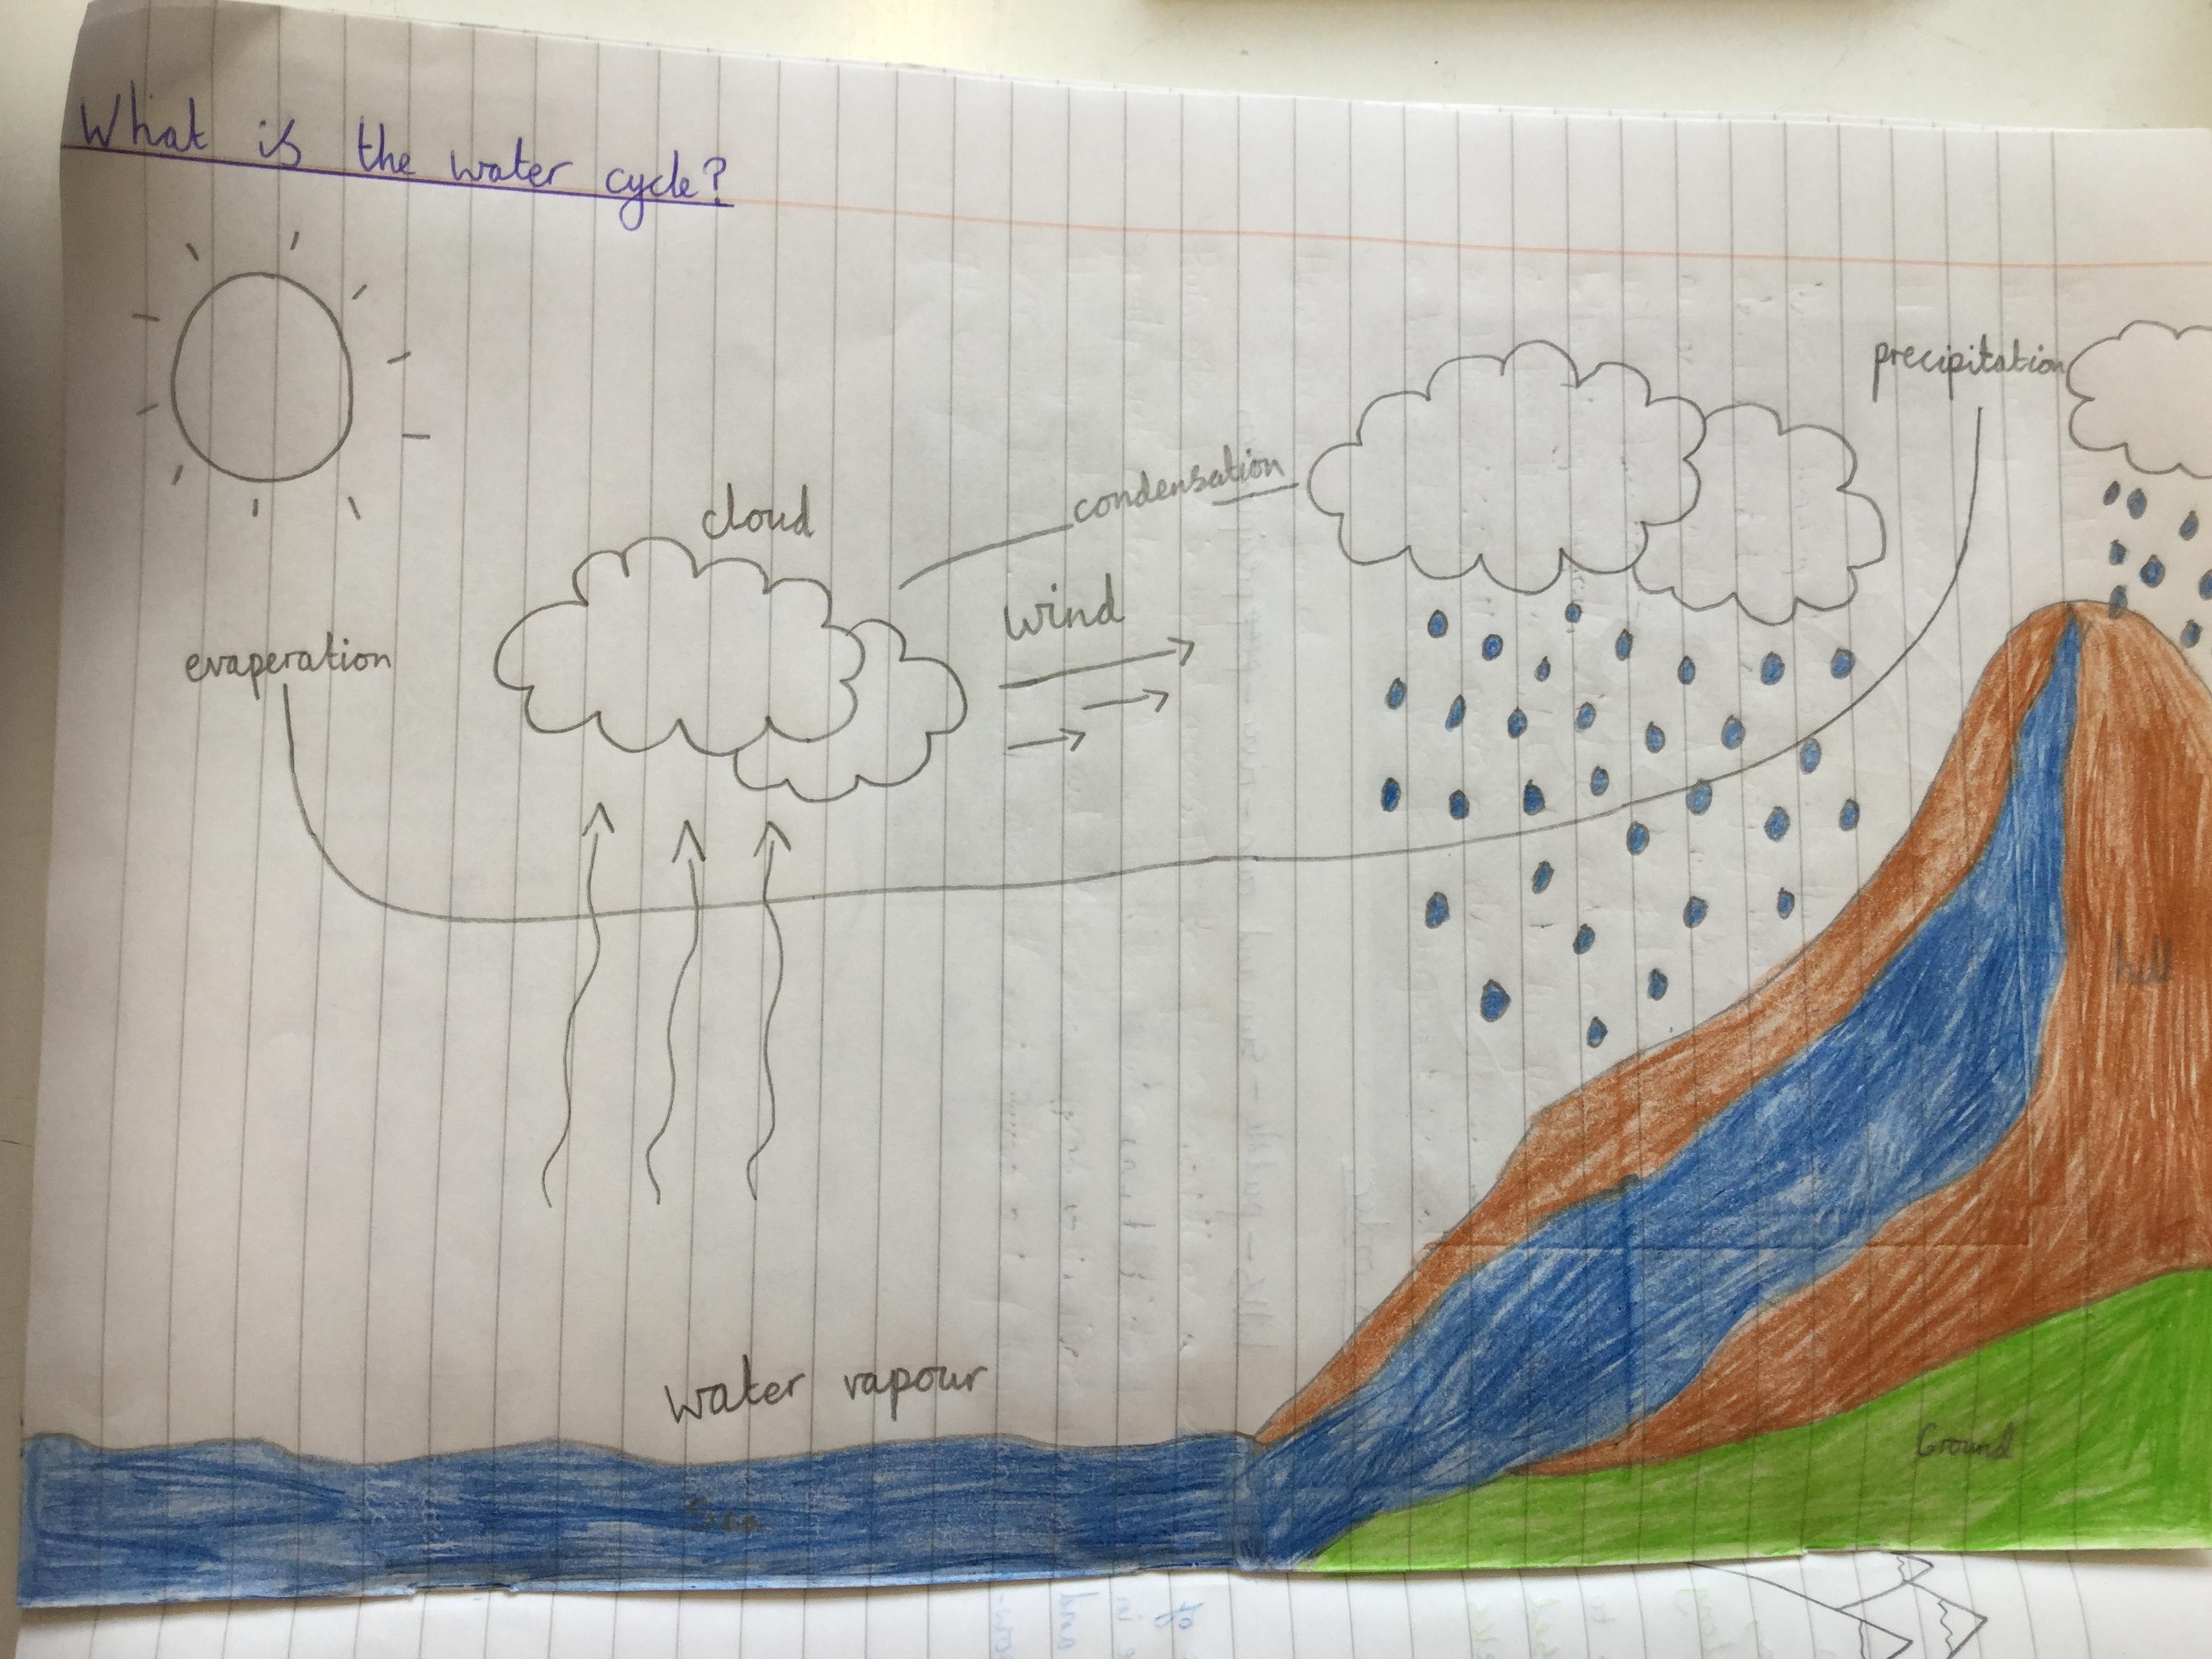 What is the water cycle?
precipitation
condensation
cloud
wind
evaperation
hill
water vapour
Ground
Sea